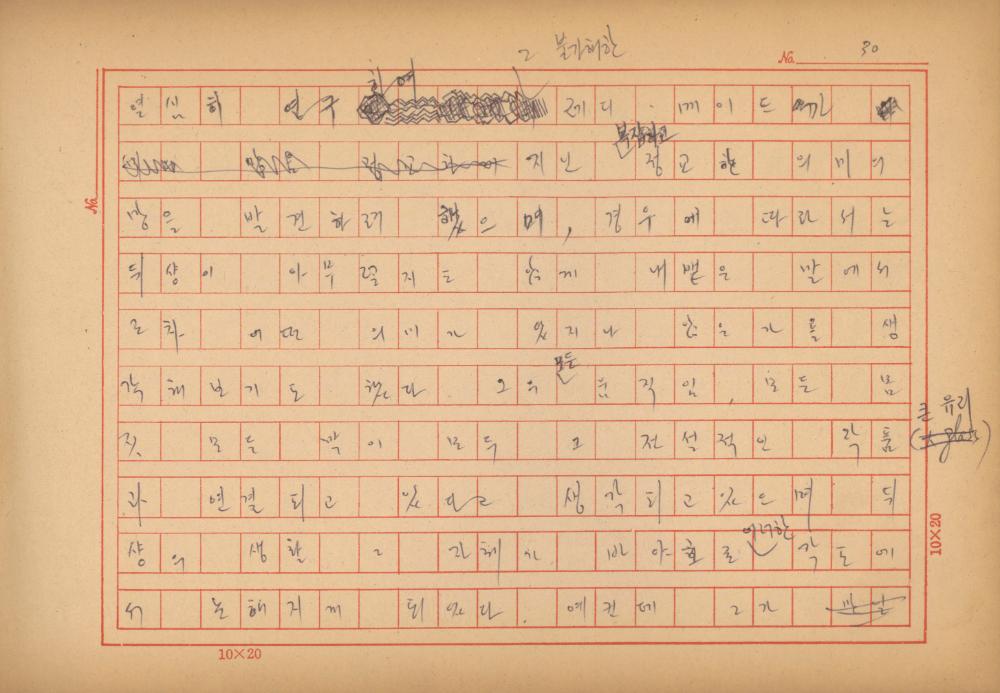 그 불가해한
No. 30
하여
열심히 연구 레디·메이드에
복잡하고
지닌 정교한 의미의
망을 발견하려 했으며, 경우에 따라서는
뒤샹이 아무렇지도 않게 내뱉은 말에서
조차 어떤 의미가 있지나 않은가를 생
각해보기도 했다. 그의
모든
움직임, 모든 몸
짓 모든 짝이 모두 그 전설적인 작품
큰 유리
과 연결되고 있다고 생각되고 있으며 뒤
이러한
샹의 생활 그 자체가 바야흐로 각도에
서 논해지게 되었다. 예컨데 그가
No.
10×20
10×20